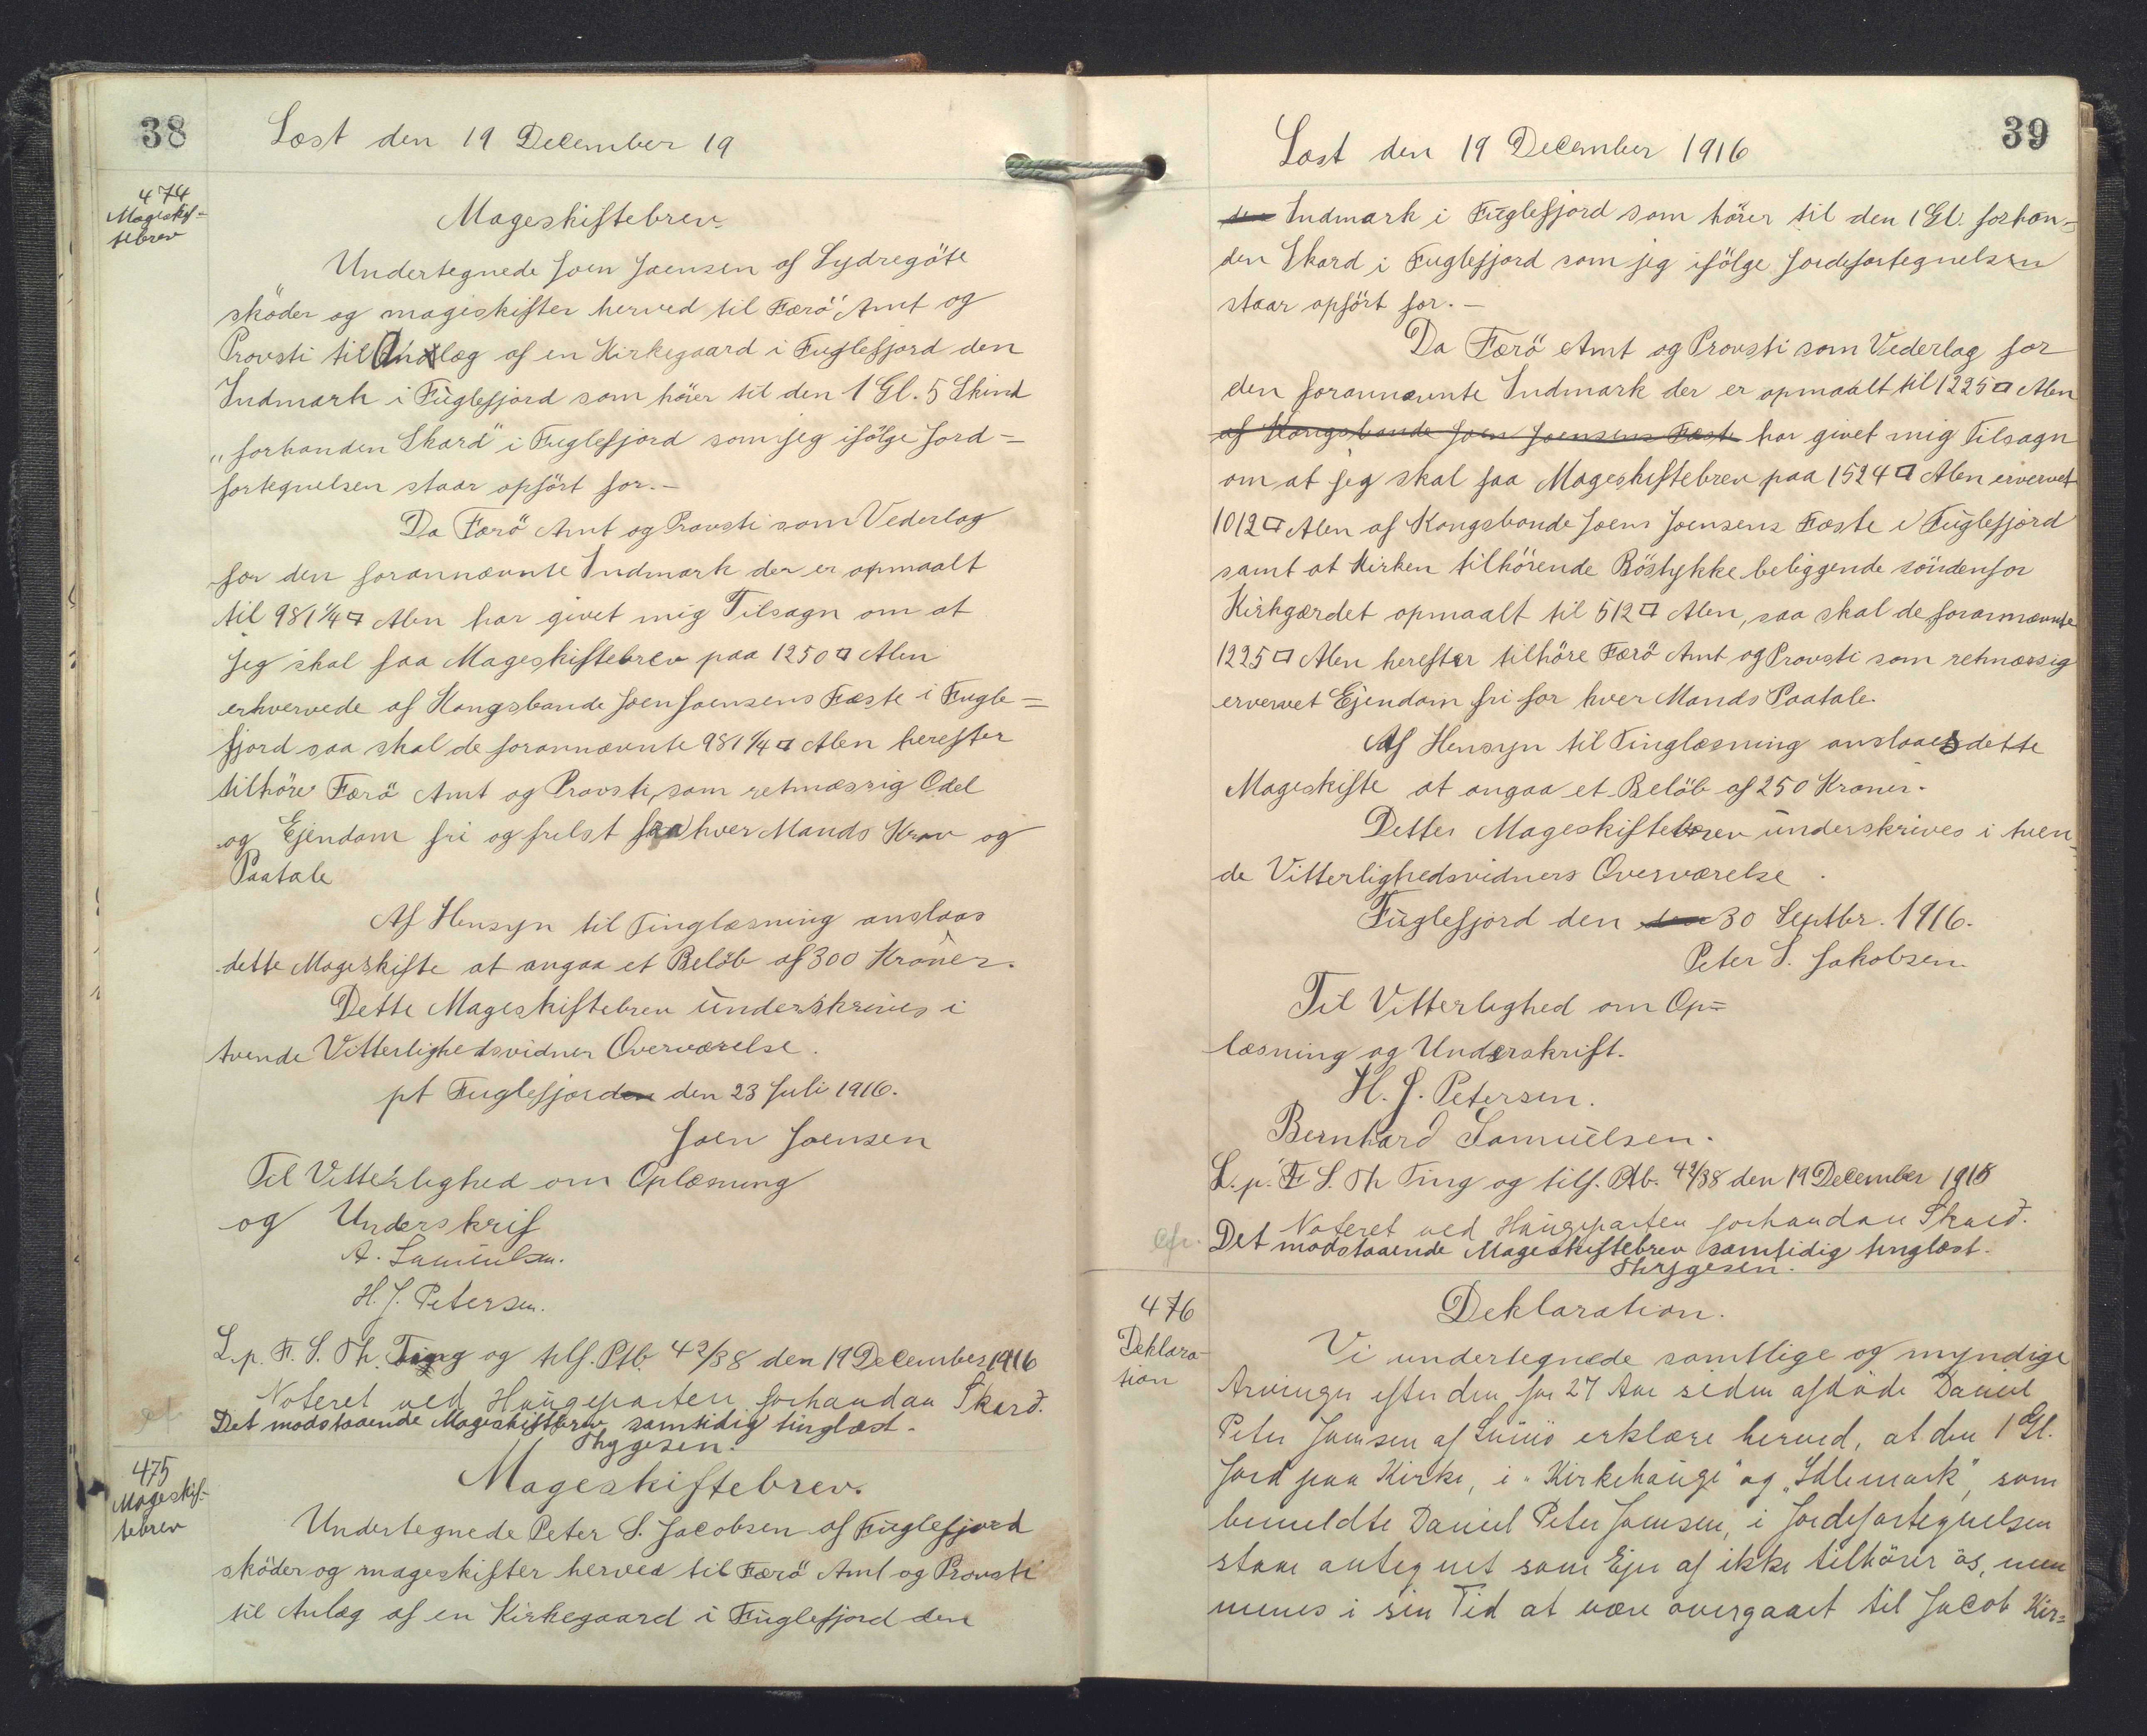 38
Læst den 19 December 19
474
Mageskif-
tebrev
Mageskiftebrev.
Undertegnede Joen Joensen af Sydregöte
sköder og mageskifter herved til Færö Amt og
Provsti til Anlæg af en Kirkegaard i Fuglefjord den
Indmark i Fuglefjord som hörer til den 1 Gl. 5 Skind
"forhanden Skard" i Fuglefjord som jeg ifölge Jord=
fortegnelsen staar opfört for.-
Da Færö Amt og Provsti som Vederlag
for den forannævnte Indmark der er opmaalt
til 981 1/4 □ Alen har givet mig Tilsagn om at
jeg skal faa Mageskiftebrev paa 1250 □ Alen
erhvervede af Kongsbonde Joen Joensens Fæste i Fugle=
fjord saa skal de forannævnte 981 1/4 □ Alen herefter
tilhöre Færö Amt og Provsti, som retmæssig Odel
og Ejendom fri og frelst fra hver Mands Krav og
Paatale
Af Hensyn til Tinglæsning anslaas
dette Mageskifte at angaa et Belöb af 300 Kroner.
Dette Mageskiftebrev underskrives i
tvende Vitterlighedsvidner Overværelse.
pt Fuglefjorden den 23 Juli 1916.
Joen Joensen
Til Vitterlighed om Oplæsning
og Underskrif
A. Samuelsen.
H. J. Petersen.
L. p. F. S. Th. Ting og tilf. Ptb. 42/38 den 19 December 1916
Noteret ved Haugeparten forhandan Skard.
cf
Det modstaaende Mageskiftebrev samtidig tinglæst.
Thygesen.
475
Mageskif-
tebrev
Mageskiftebrev.
Undertegnede Peter S. Jacobsen af Fuglefjord
sköder og mageskifter herved til Færö Amt og Provsti
til Anlæg af en Kirkegaard i Fuglefjord den
39
Læst den 19 December 1916
den Indmark i Fuglefjord som hörer til den 1 Gl. forhan=
den Skard i Fuglefjord som jeg ifölge Jordefortegnelsen
staar opfört for.-
Da Færö Amt og Provsti som Vederlag for
den forannævnte Indmark der er opmaalt til 1225 □ Alen
af Kongsbonde Joen Joensens Fæste har givet mig Tilsagn
om at jeg skal faa Mageskiftebrev paa 1524 □ Alen ervervet
1012 □ Alen af Kongsbonde Joens Joensens Fæste i Fuglefjord
samt at Kirken tilhörende Böstykke beliggende söndenfor
Kirkgærdet opmaalt til 512 □ Alen, saa skal de forannævnte
1225 □ Alen herefter tilhöre Færö Amt og Provsti som retmæssig
ervervet Ejendom fri for hver Mands Paatale.
Af Hensyn til Tinglæsning anslaaes dette
Mageskifte at angaa et Belöb af 250 Kroner.
Dette Mageskiftebrev underskrives i tven=
de Vitterlighedsvidners Overværelse.
Fuglefjord den den 30 Septbr. 1916.
Peter S. Jakobsen.
Til Vitterlighed om Op=
læsning og Underskrift.
H. J. Petersen.
Bernhard Samuelsen.
L. p. F S. Th Ting og tilf. Ptb. 42/38 den 19 December 1916
Noteret ved Haugeparten forhandan Skard.
cfr.
Det modstaaende Mageskiftebrev samtidig tinglæst.
Thygesen.
476
Deklara-
tion
Deklaration.
Vi undertegnede samtlige og myndige
Arvinger efter den for 27 Aar siden afdöde Daniel
Peter Joensen af erklære herved, at den 1 Gl.
Jord paa Kirke, i "Kirkehauge" og "Idlemark", som
bemeldte Daniel Peter Joensen, i Jordefortegnelsen
staar antegnet som Ejer af ikke tilhörer os, men
menes i sin Tid at være overgaaet til Jacob Kir=